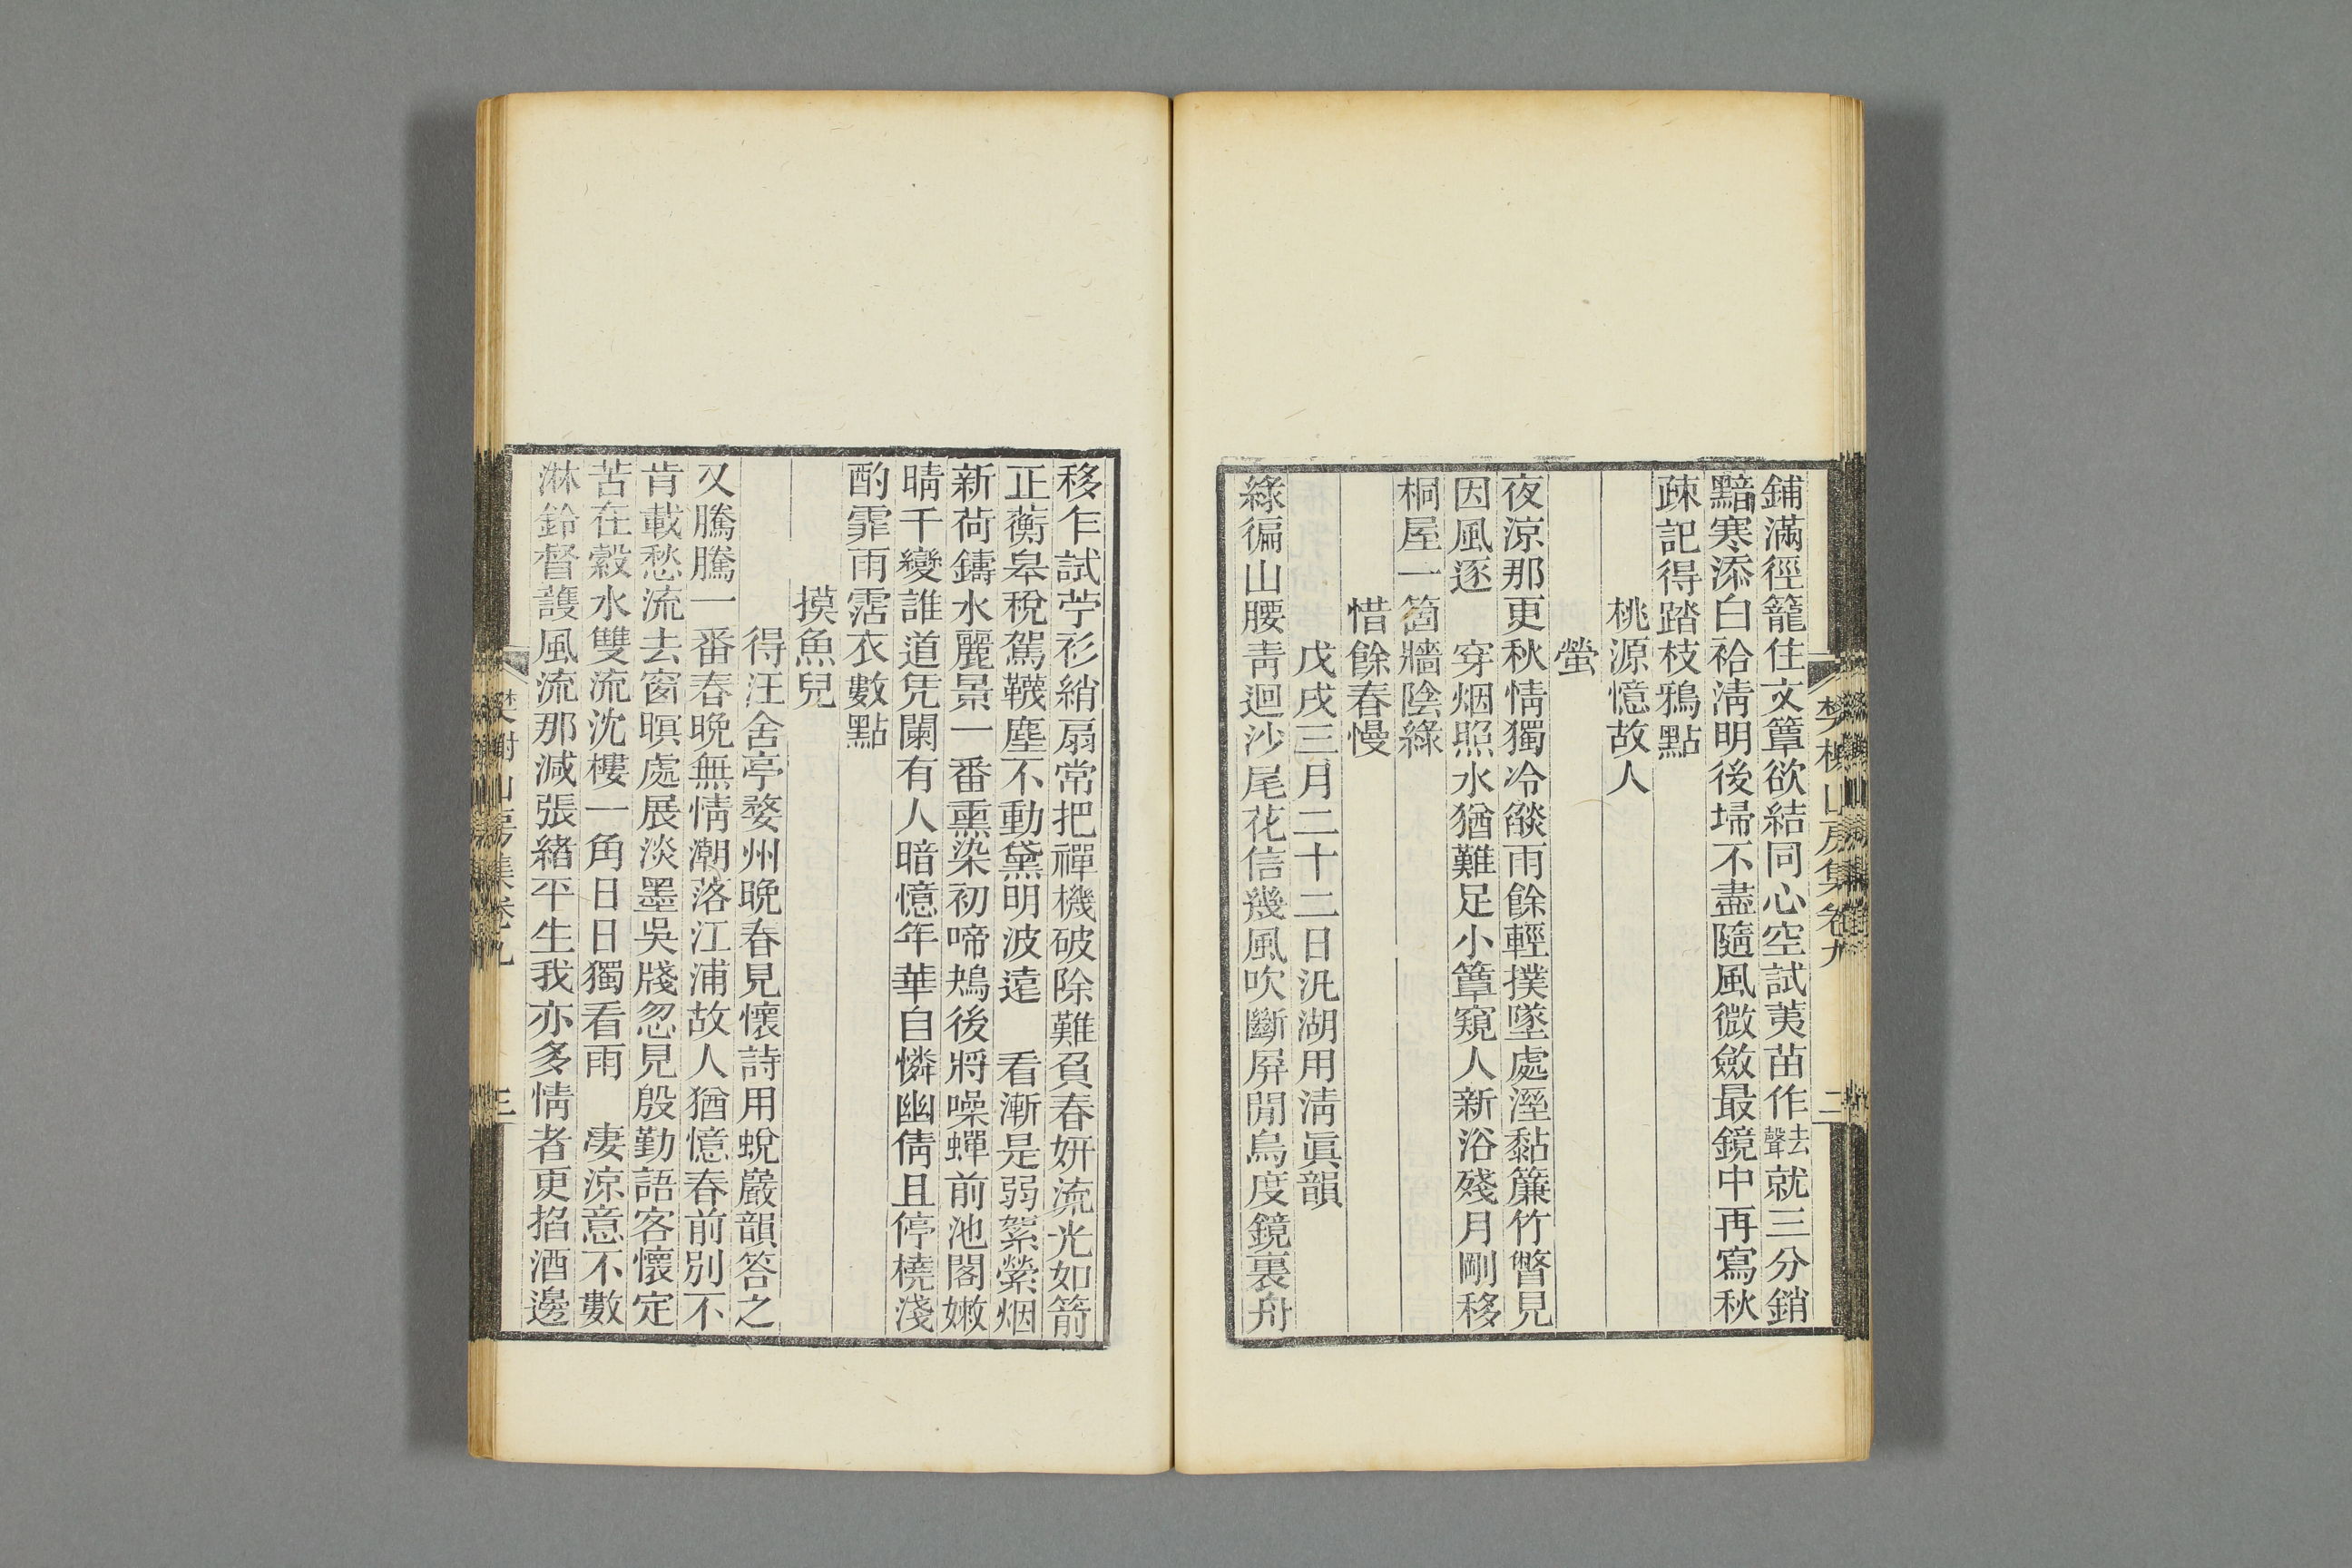 鋪滿徑籠住文簟欲結同心空試荑苗作去聲就三分銷
黯寒添白袷淸明後埽不盡隨風微斂最鏡中再寫秋
疎記得踏枝鴉點
桃源憶故人
螢
夜涼那更秋情獨冷燄雨餘輕撲墜處溼黏簾竹瞥見
因風逐　穿烟照水猶難足小簟窺人新浴殘月剛移
桐屋一箇牆陰綠
惜餘春慢
戊戌三月二十二日汎湖用淸眞韻
綠徧山腰靑迴沙尾花信幾風吹斷屏閒鳥度鏡裏舟
樊榭山房集卷九
二
移乍試苧衫綃扇常把禪機破除難負春妍流光如箭
正蘅皋稅駕韈塵不動黛明波遠　看漸是弱絮縈烟
新荷鑄水麗景一番熏染初啼鴂後將噪蟬前池閣嫩
晴千變誰道凭闌有人暗憶年華自憐幽倩且停橈淺
酌霏雨霑衣數點
摸魚兒
得汪舍亭婺州晚春見懷詩用蛻巖韻答之
又騰騰一番春晚無情潮落江浦故人猶憶春前別不
肯載愁流去窗暝處展淡墨吳牋忽見殷勤語客懷定
苦在縠水雙流沈樓一角日日獨看雨　淒涼意不數
淋鈴督護風流那減張緒平生我亦多情者更掐酒邊
樊榭山房集卷九
三